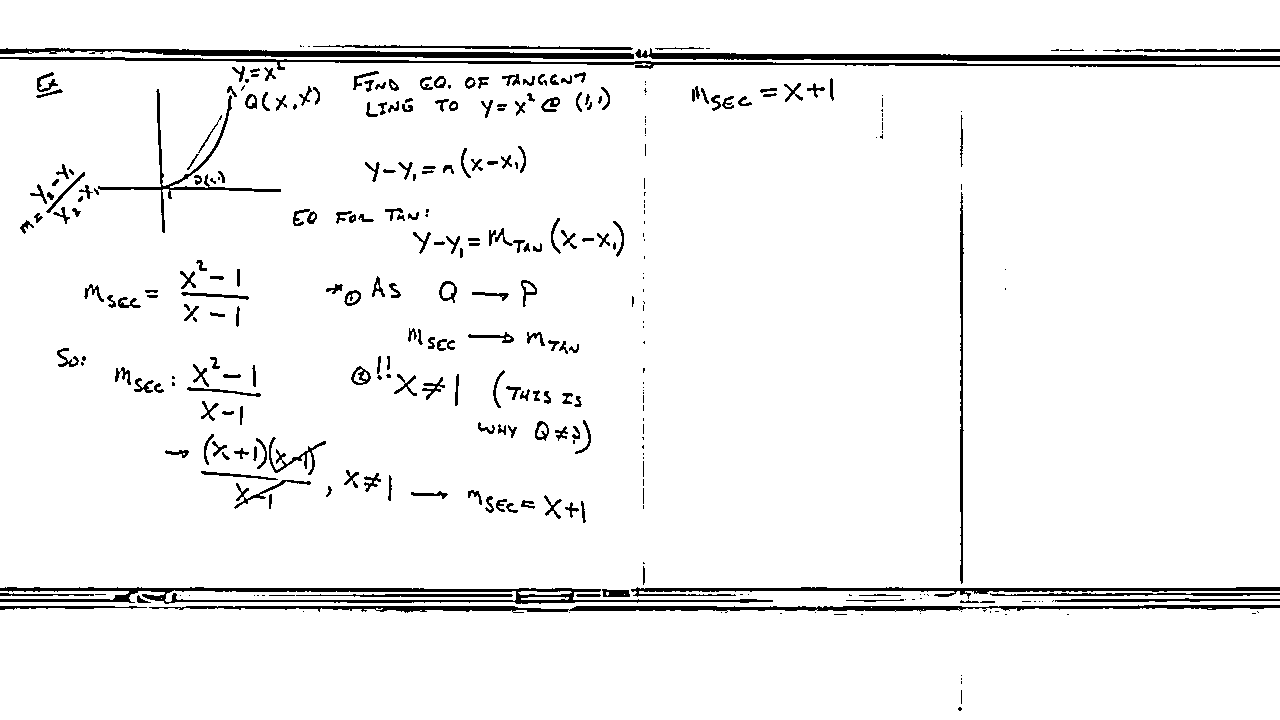 Ex
y=x²
Q(x,y)
P(1,1)
1
m = y₂-y₁ / x₂-x₁
FIND EQ. OF TANGENT
LING TO y=x² @ (1,1)
y-y₁=m(x-x₁)
EQ FOR TAN:
y-y₁=m_TAN(x-x₁)
m_SEC = x²-1 / x-1
→ ① AS Q → P
m_SEC → m_TAN
So:
m_SEC: x²-1 / x-1
② !! x≠1 (THIS IS
WHY Q≠P)
→ (x+1)(x-1) / x-1 , x≠1 → m_SEC = x+1
m_SEC = x+1